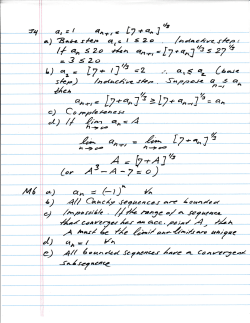 J4 a₁ = 1 aₙ₊₁ = [7 + aₙ]^(1/3)
a) Base step a₁ = 1 ≤ 20. Inductive step:
If aₙ ≤ 20 then aₙ₊₁ = [7 + aₙ]^(1/3) ≤ 27^(1/3)
= 3 ≤ 20
b) a₂ = [7 + 1]^(1/3) = 2 ∴ a₁ ≤ a₂ (base
step) Inductive step. Suppose aₙ₋₁ ≤ aₙ
then
aₙ₊₁ = [7 + aₙ]^(1/3) ≥ [7 + aₙ₋₁]^(1/3) = aₙ
c) Completeness
d) If lim aₙ = A
n→∞
lim aₙ₊₁ = lim [7 + aₙ]^(1/3)
n→∞ n→∞
A = [7 + A]^(1/3)
(or A³ - A - 7 = 0)
M6 a) aₙ = (-1)ⁿ ∀n
b) All Cauchy sequences are bounded
c) Impossible. If the range of a sequence
that converges has an acc. point A, then
A must be the limit and limits are unique
d) aₙ = 1 ∀n
e) All bounded sequences have a convergent
subsequence